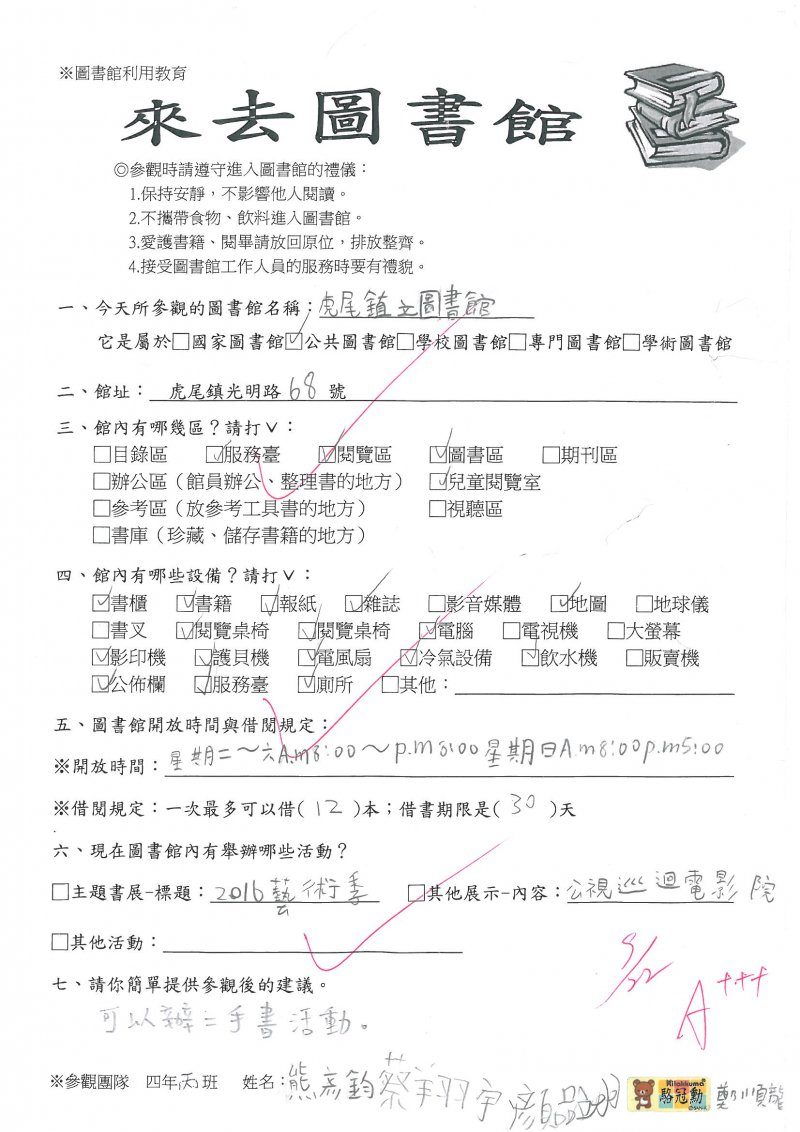 ※圖書館利用教育
來去圖書館
◎參觀時請遵守進入圖書館的禮儀：
1.保持安靜，不影響他人閱讀。
2.不攜帶食物、飲料進入圖書館。
3.愛護書籍、閱畢請放回原位，排放整齊。
4.接受圖書館工作人員的服務時要有禮貌。
一、今天所參觀的圖書館名稱：虎尾鎮立圖書館
它是屬於□國家圖書館☑公共圖書館□學校圖書館□專門圖書館□學術圖書館
二、館址：虎尾鎮光明路68號
三、館內有哪幾區？請打∨：
□目錄區 ☑服務臺 ☑閱覽區 ☑圖書區 □期刊區
□辦公區（館員辦公、整理書的地方） ☑兒童閱覽室
□參考區（放參考工具書的地方） □視聽區
□書庫（珍藏、儲存書籍的地方）
四、館內有哪些設備？請打∨：
☑書櫃 ☑書籍 ☑報紙 ☑雜誌 □影音媒體 ☑地圖 □地球儀
□書叉 ☑閱覽桌椅 ☑閱覽桌椅 ☑電腦 □電視機 □大螢幕
☑影印機 ☑護貝機 ☑電風扇 ☑冷氣設備 ☑飲水機 □販賣機
☑公佈欄 ☑服務臺 ☑廁所 □其他：
五、圖書館開放時間與借閱規定：
※開放時間：星期二～六A.m8:00～p.m8:00星期日A.m8:00p.m5:00
※借閱規定：一次最多可以借( 12 )本；借書期限是( 30 )天
六、現在圖書館內有舉辦哪些活動？
□主題書展-標題：2016藝術季 □其他展示-內容：公視巡迴電影院
□其他活動：
七、請你簡單提供參觀後的建議。
5/22
A+++
可以辦二手書活動。
※參觀團隊 四年 班 姓名：熊彥鈞 蔡翔宇 顏 Rilakkuma 駱冠勳 鄭順